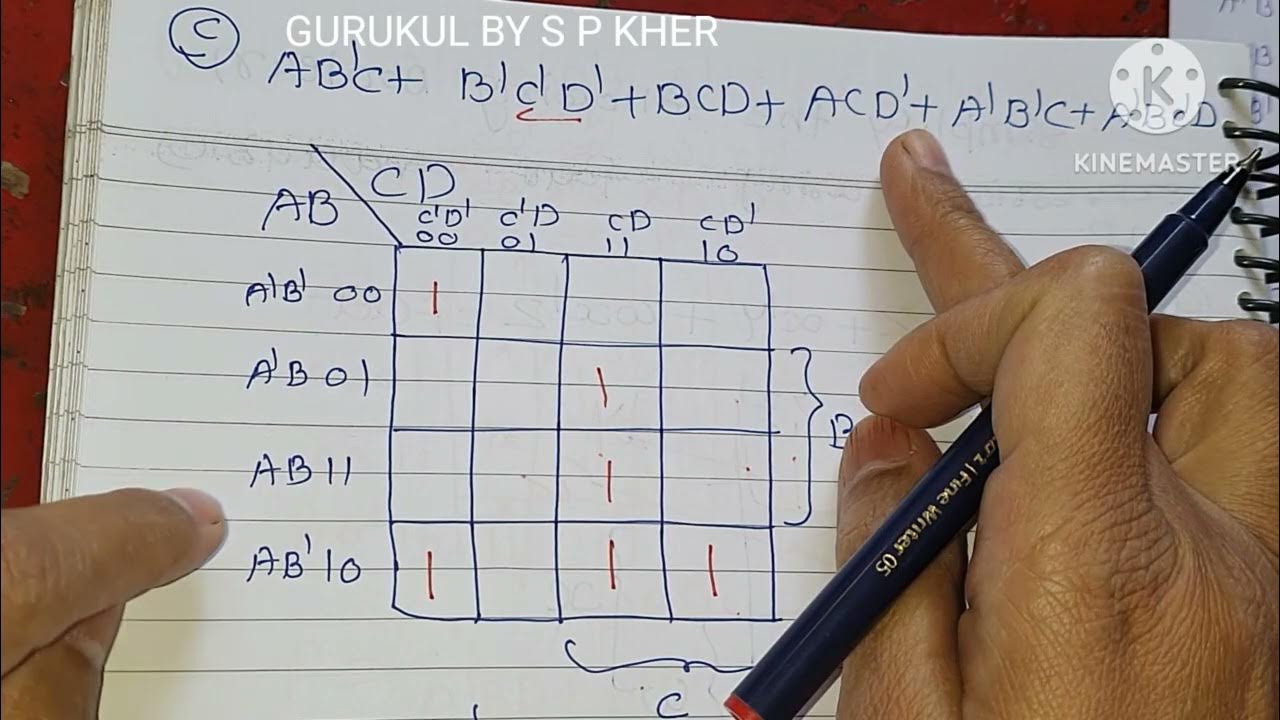 GURUKUL BY S P KHER
C
AB'C + B'C'D' + BCD + ACD' + A'B'C +
KINEMASTER
AB CD
C'D' C'D CD CD'
00 01 11 10
A'B' 00 1
A'B 01 1
AB 11 1
AB' 10 1 1 1
B
C
Fine Writer 05